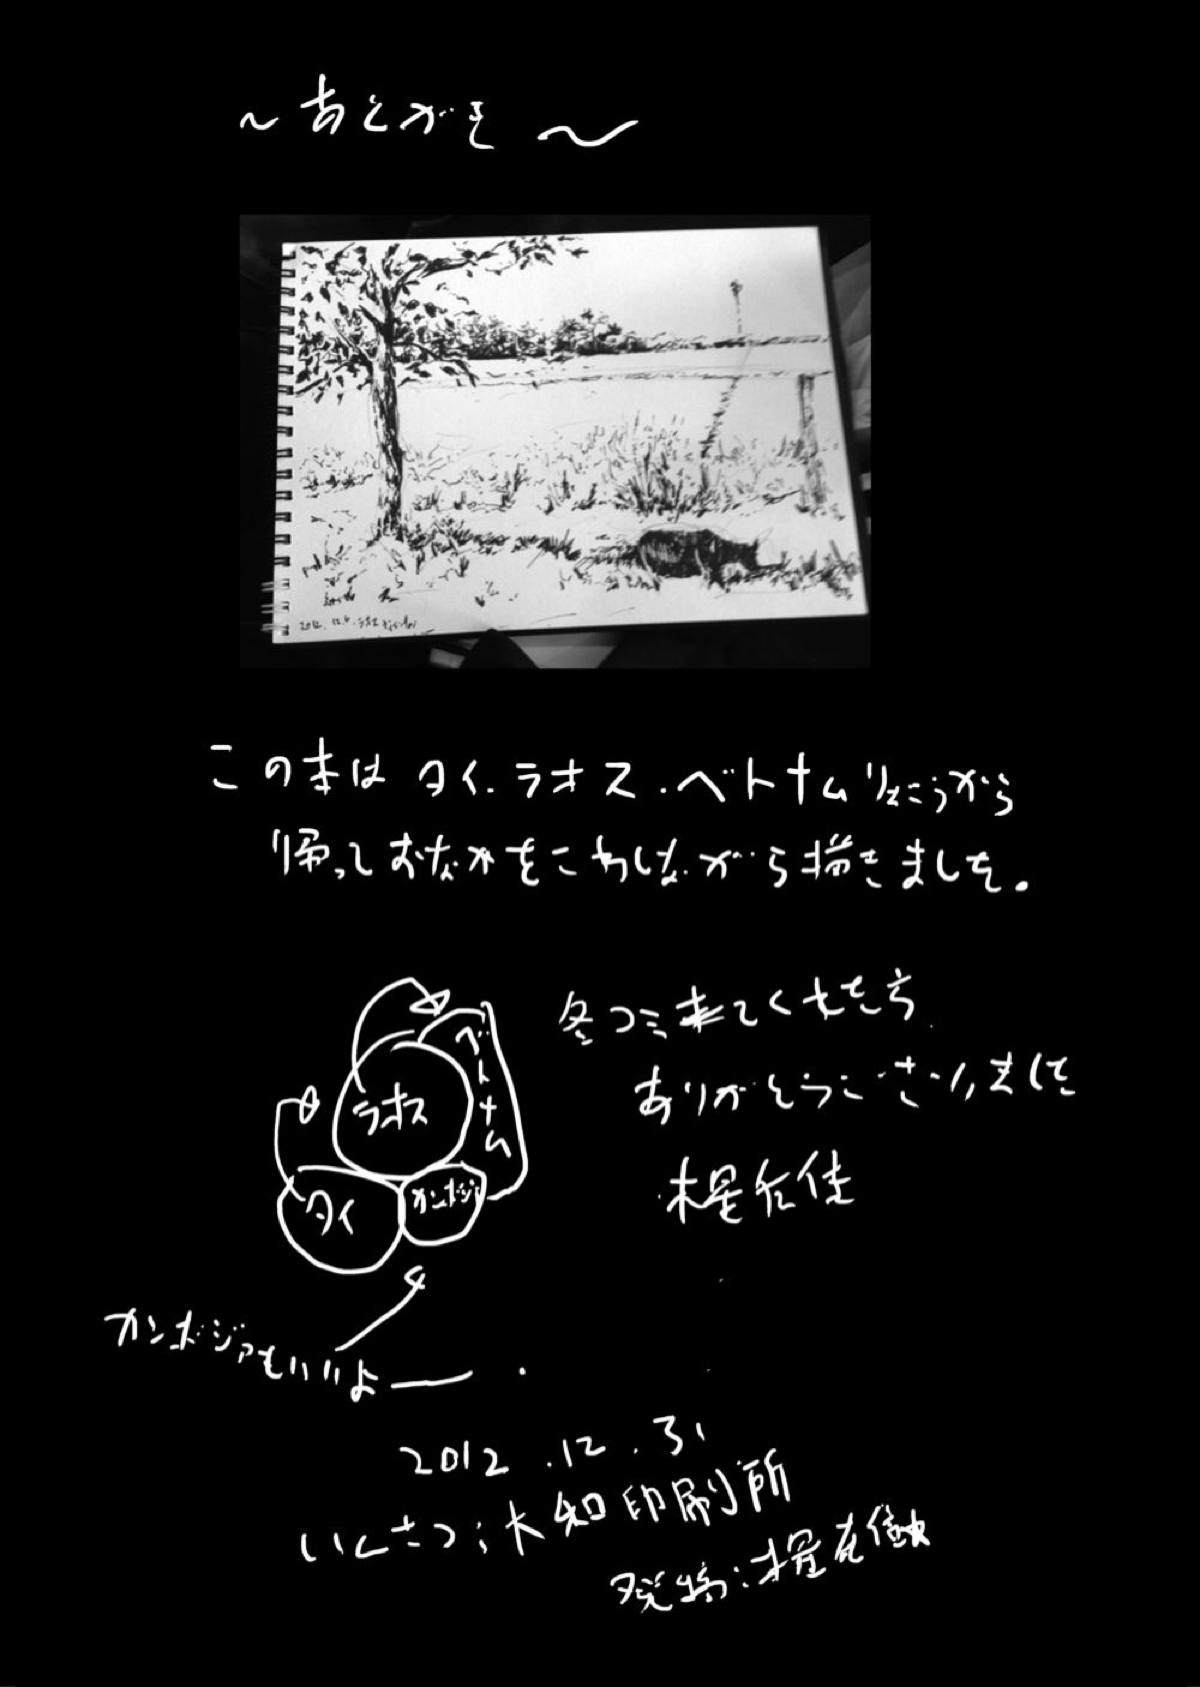 〜あとがき〜
2012.12.4.ラオス
この本はタイ.ラオス.ベトナムりょこうから
帰っておなかをこわしながら描きました。
冬コミ来てくれた方
ありがとうございました
木星在住
ベトナム
ラオス
タイ
カンボジア
カンボジアもいいよー.
2012.12.31
いんさつ:大知印刷所
発行:木星在住